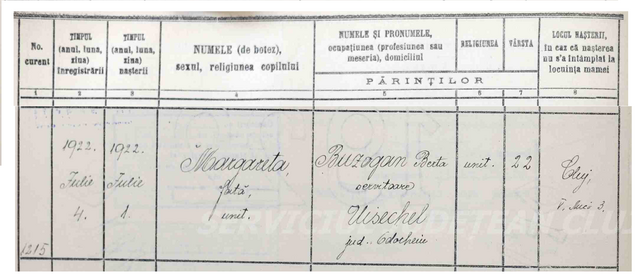 No. curent
TIMPUL (anul, luna, ziua) înregistrării
TIMPUL (anul, luna, ziua) nașterii
NUMELE (de botez),
sexul, religiunea copilului
NUMELE ȘI PRONUMELE,
ocupațiunea (profesiunea sau
meseria), domiciliul
RELIGIUNEA
VÂRSTA
PĂRINȚILOR
LOCUL NAȘTERII,
în caz că nașterea
nu s'a întâmplat la
locuința mamei
1 2 3 4 5 6 7 8
1922. 1922. Margareta, Buzogan Berta unit. 22 Cluj,
Iulie Iulie fată, servitoare
4. 1. unit. V. 3.
jud. Odocheiu
1215
SERVICIUL JUDEȚEAN CLUJ